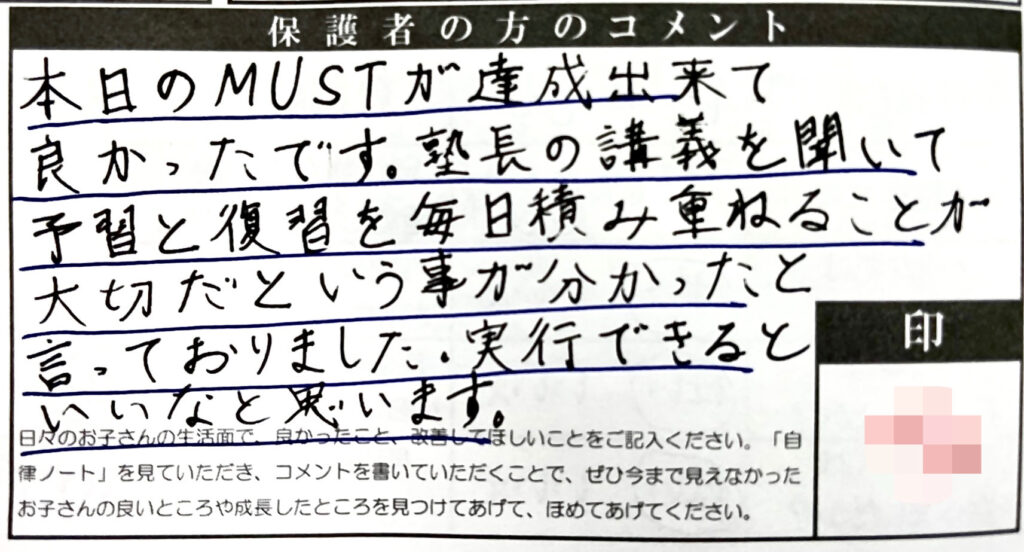 保護者の方のコメント
本日のMUSTが達成出来て
良かったです。塾長の講義を聞いて
予習と復習を毎日積み重ねることが
大切だという事が分かったと
言っておりました。実行できると
いいなと思います。
印
日々のお子さんの生活面で、良かったこと、改善してほしいことをご記入ください。「自
律ノート」を見ていただき、コメントを書いていただくことで、ぜひ今まで見えなかった
お子さんの良いところや成長したところを見つけてあげて、ほめてあげてください。